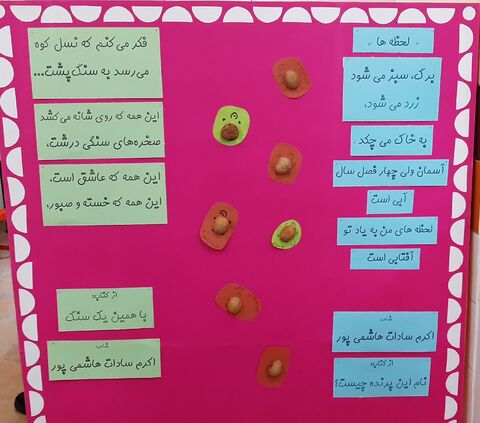 لحظه ها
برگ، سبز می شود
زرد می شود،
به خاک می چکد
آسمان ولی چهار فصل سال
آبی است
لحظه های من به یاد تو
آفتابی است ...
شاعر:
اکرم سادات هاشمی پور
از کتاب:
نام این پرنده چیست؟
فکر می کنم که نسل کوه
می رسد به سنگ پشت...
این همه که روی شانه می کشد
صخره های سنگی درشت،
این همه که عاشق است،
این همه که خسته و صبور،
از کتاب:
با همین یک سنگ
شاعر:
اکرم سادات هاشمی پور